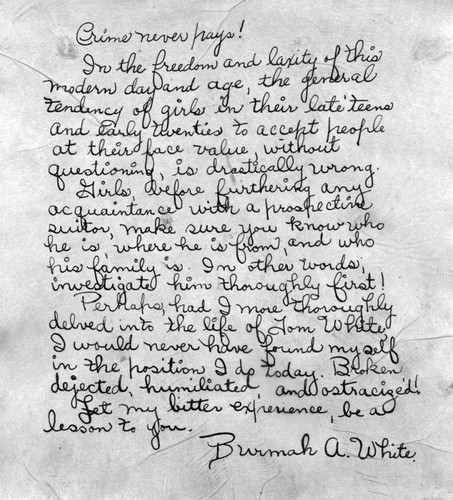 Crime never pays!
In the freedom and laxity of this
modern day and age, the general
tendency of girls in their late teens
and early twenties to accept people
at their face value, without
questioning, is drastically wrong.
Girls, before furthering any
acquaintance with a prospective
suitor, make sure you know who
he is, where he is from, and who
his family is. In other words,
investigate him thoroughly first!
Perhaps, had I more thoroughly
delved into the life of Tom White
I would never have found myself
in the position I do today. Broken
dejected, humiliated, and ostracized!
Let my bitter experience, be a
lesson to you.
Burmah A. White.